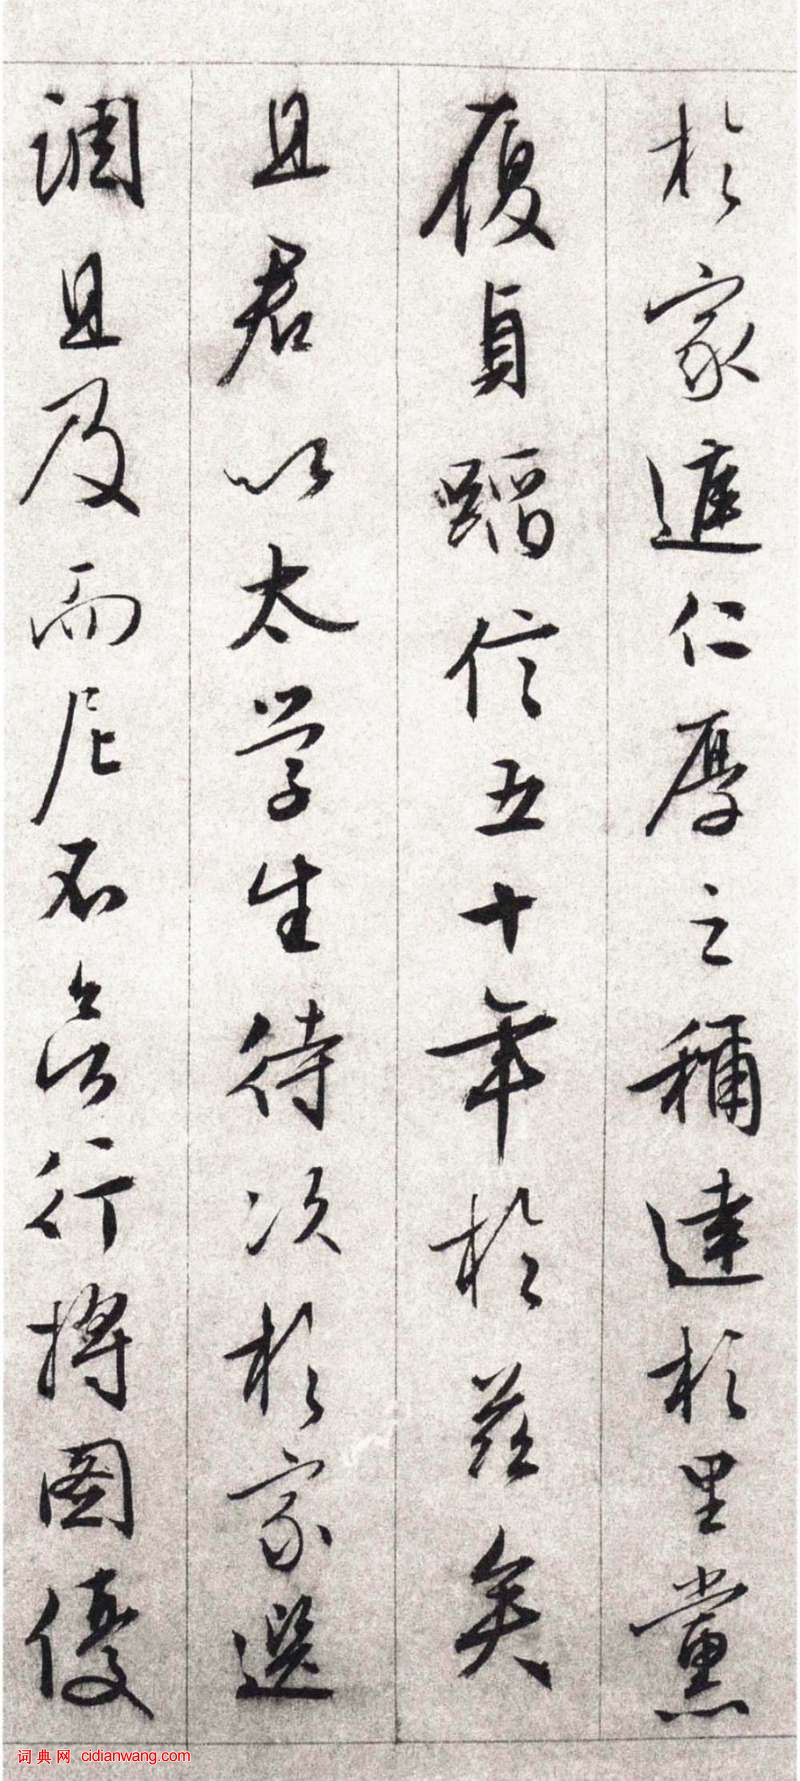 於家庭仁厚之稱達於里黨
履貞蹈信五十年於茲矣
且君以太学生待次於家選
調且及而尼不行將圖優
词典网 cidianwang.com